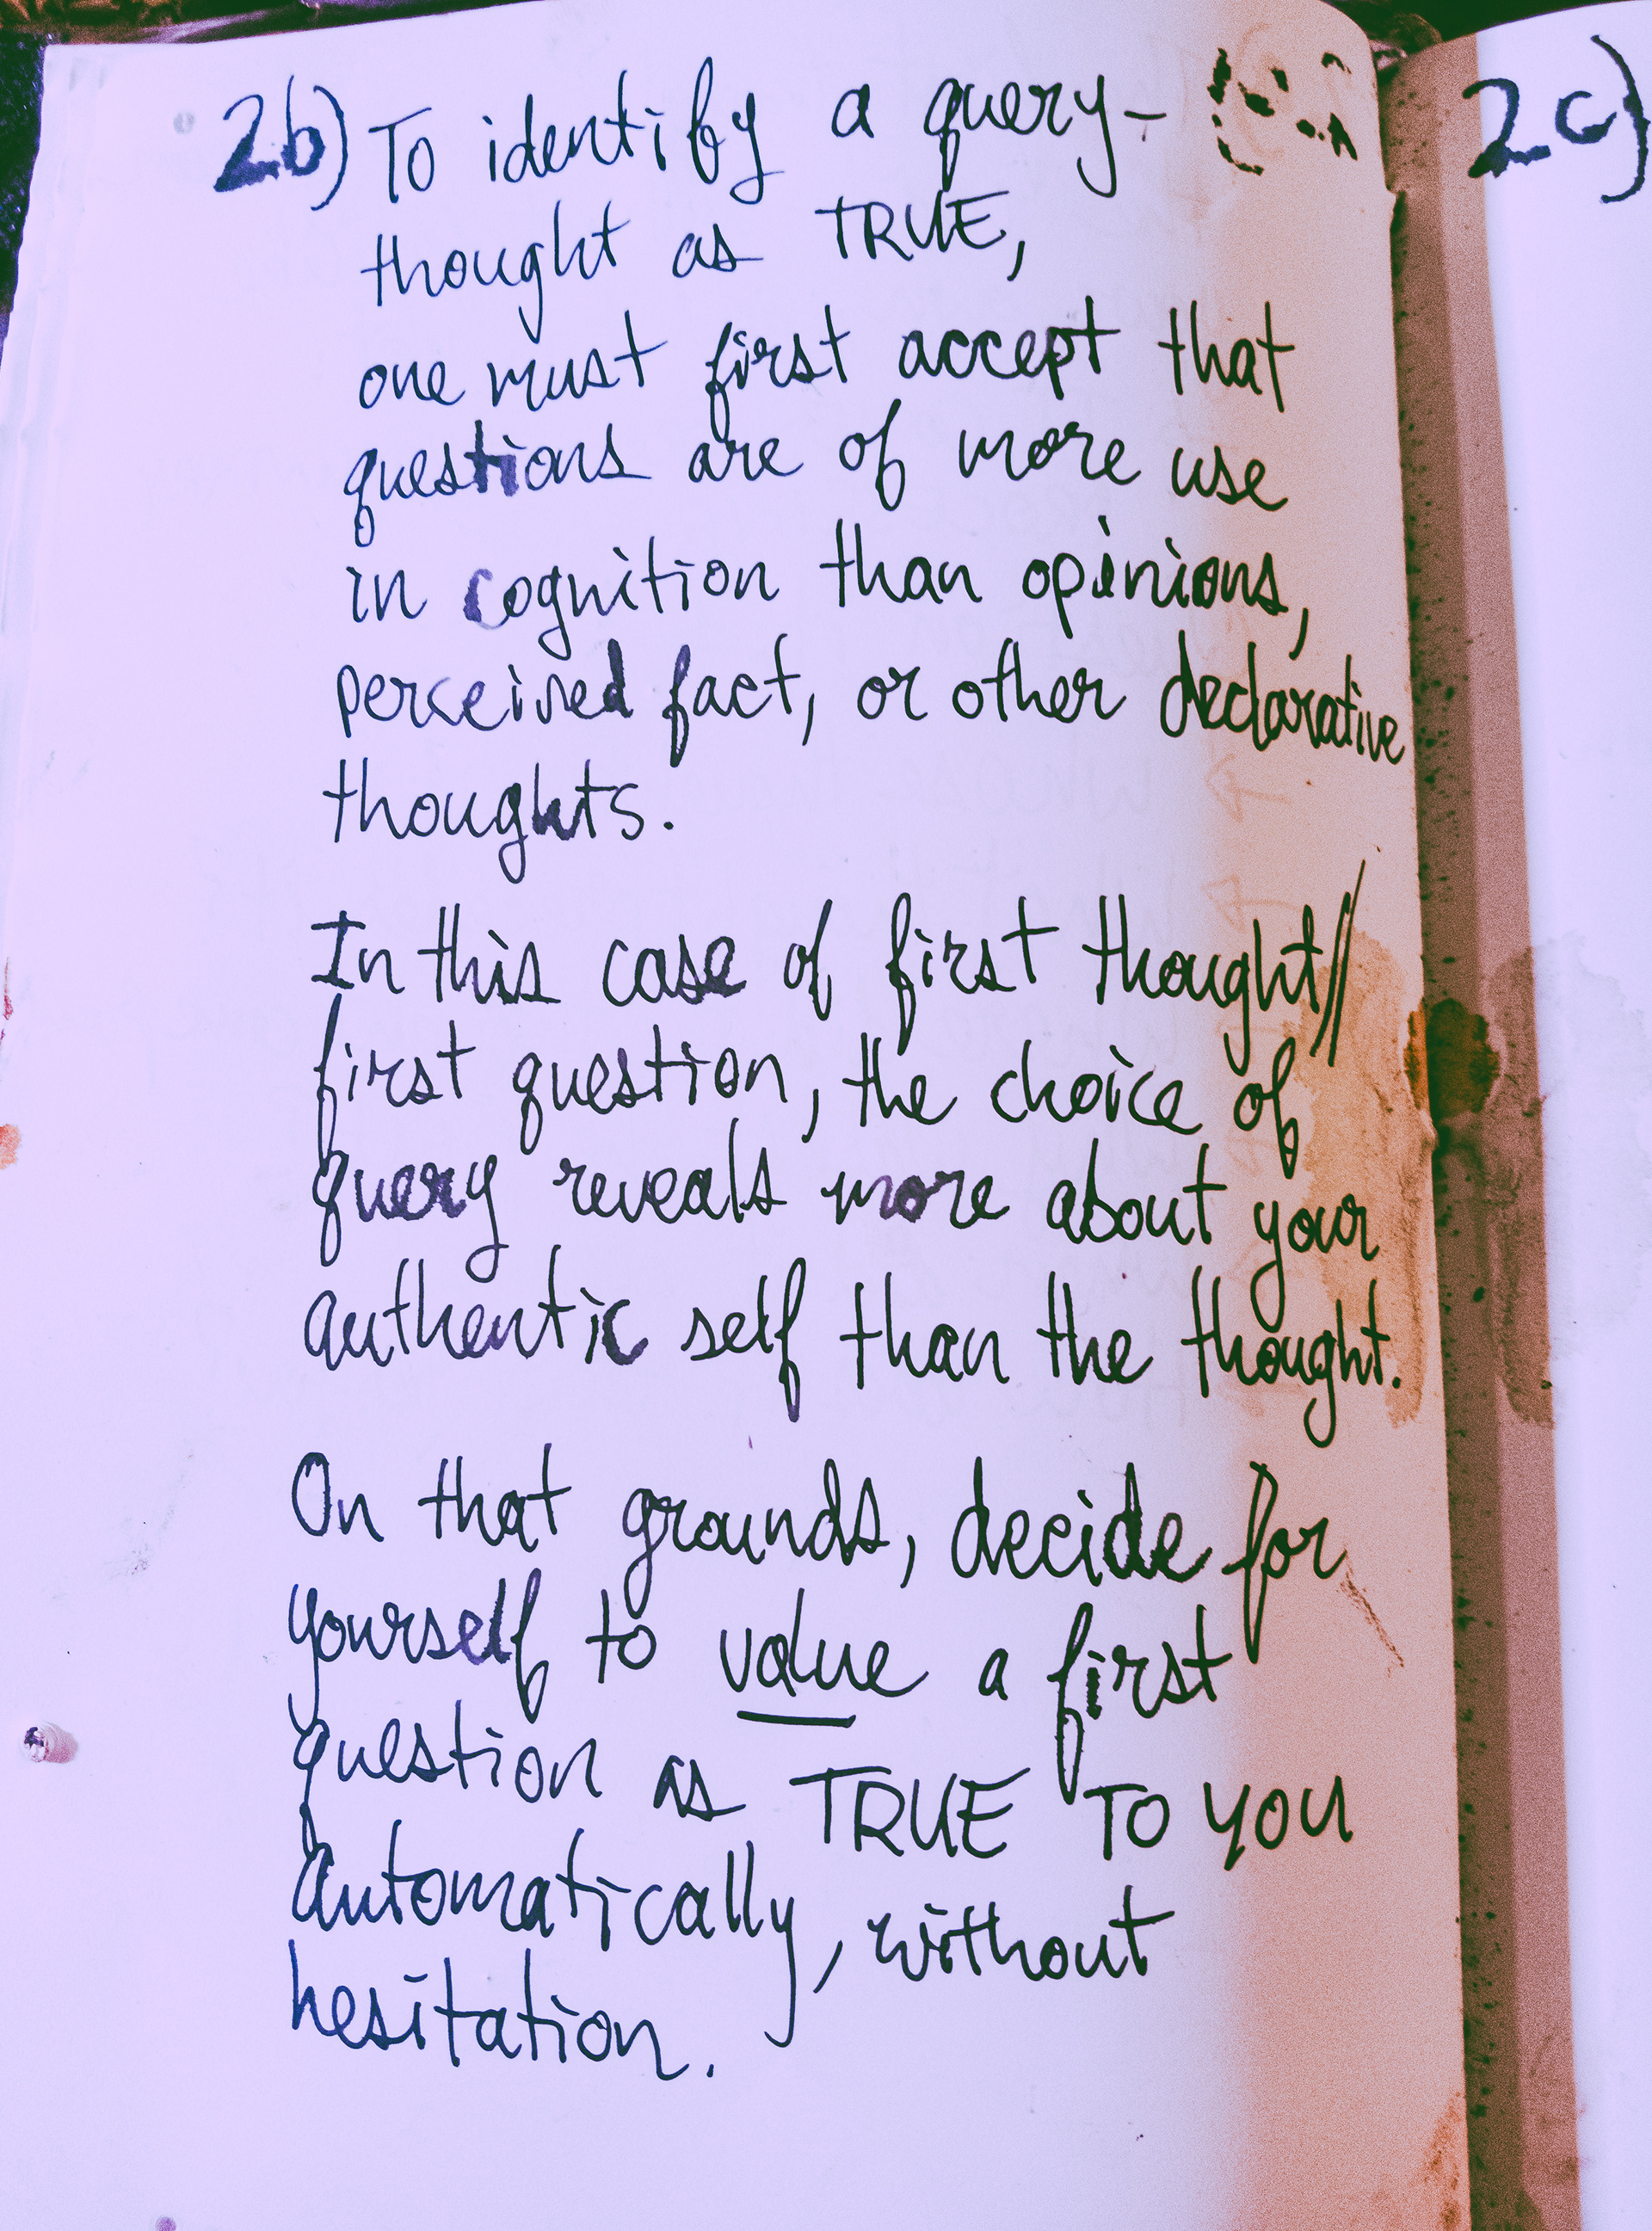 2b) To identify a query-
thought as TRUE,
one must first accept that
questions are of more use
in cognition than opinions,
perceived fact, or other declarative
thoughts.
In this case of first thought//
first question, the choice of
query reveals more about your
authentic self than the thought.
On that grounds, decide for
yourself to value a first
question as TRUE TO YOU
automatically, without
hesitation.
2c)